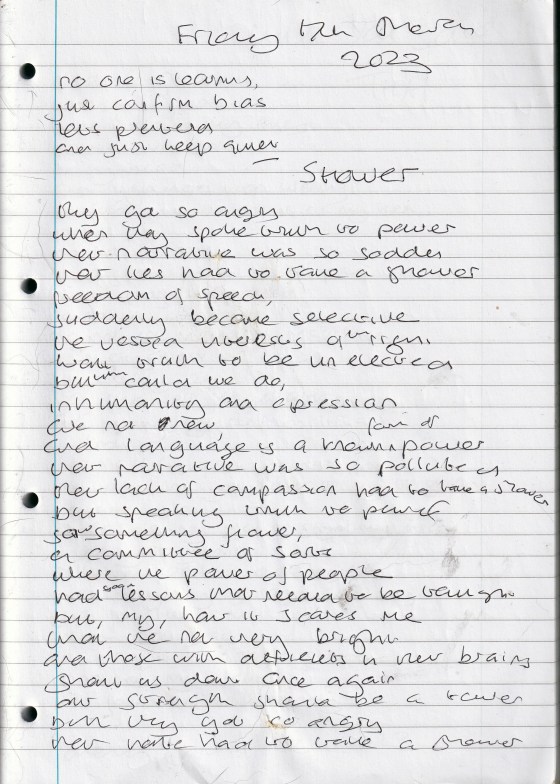 Friday March
2023
no one is learning,
just confirm bias
lets pretend
and just keep quiet
Shower
they got so angry
when they spoke truth to power
their narrative was so sodden
their lies had to take a shower
freedom of speech,
suddenly became selective
the vested interests of the right
want truth to be un elected
but what could we do,
inhumanity and opression
are not new,
form of
and language is a known power
their narrative was so polluted
their lack of compassion had to take a shower
but speaking truth to power
saw something flower,
a committee of sorts
where the power of people
had some lessons that needed to be taught
but, my, how it scares me
that the not very bright
and those with deficiets in their brains
shout us down once again
our strength should be a tower
but they got so angry
their hate had to take a shower